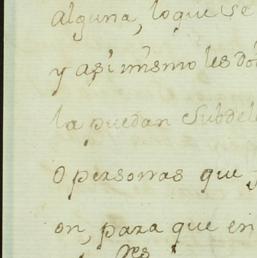 alguna, lo que se
y asi mismo les dó
la puedan subdele
o personas que
on, para que en